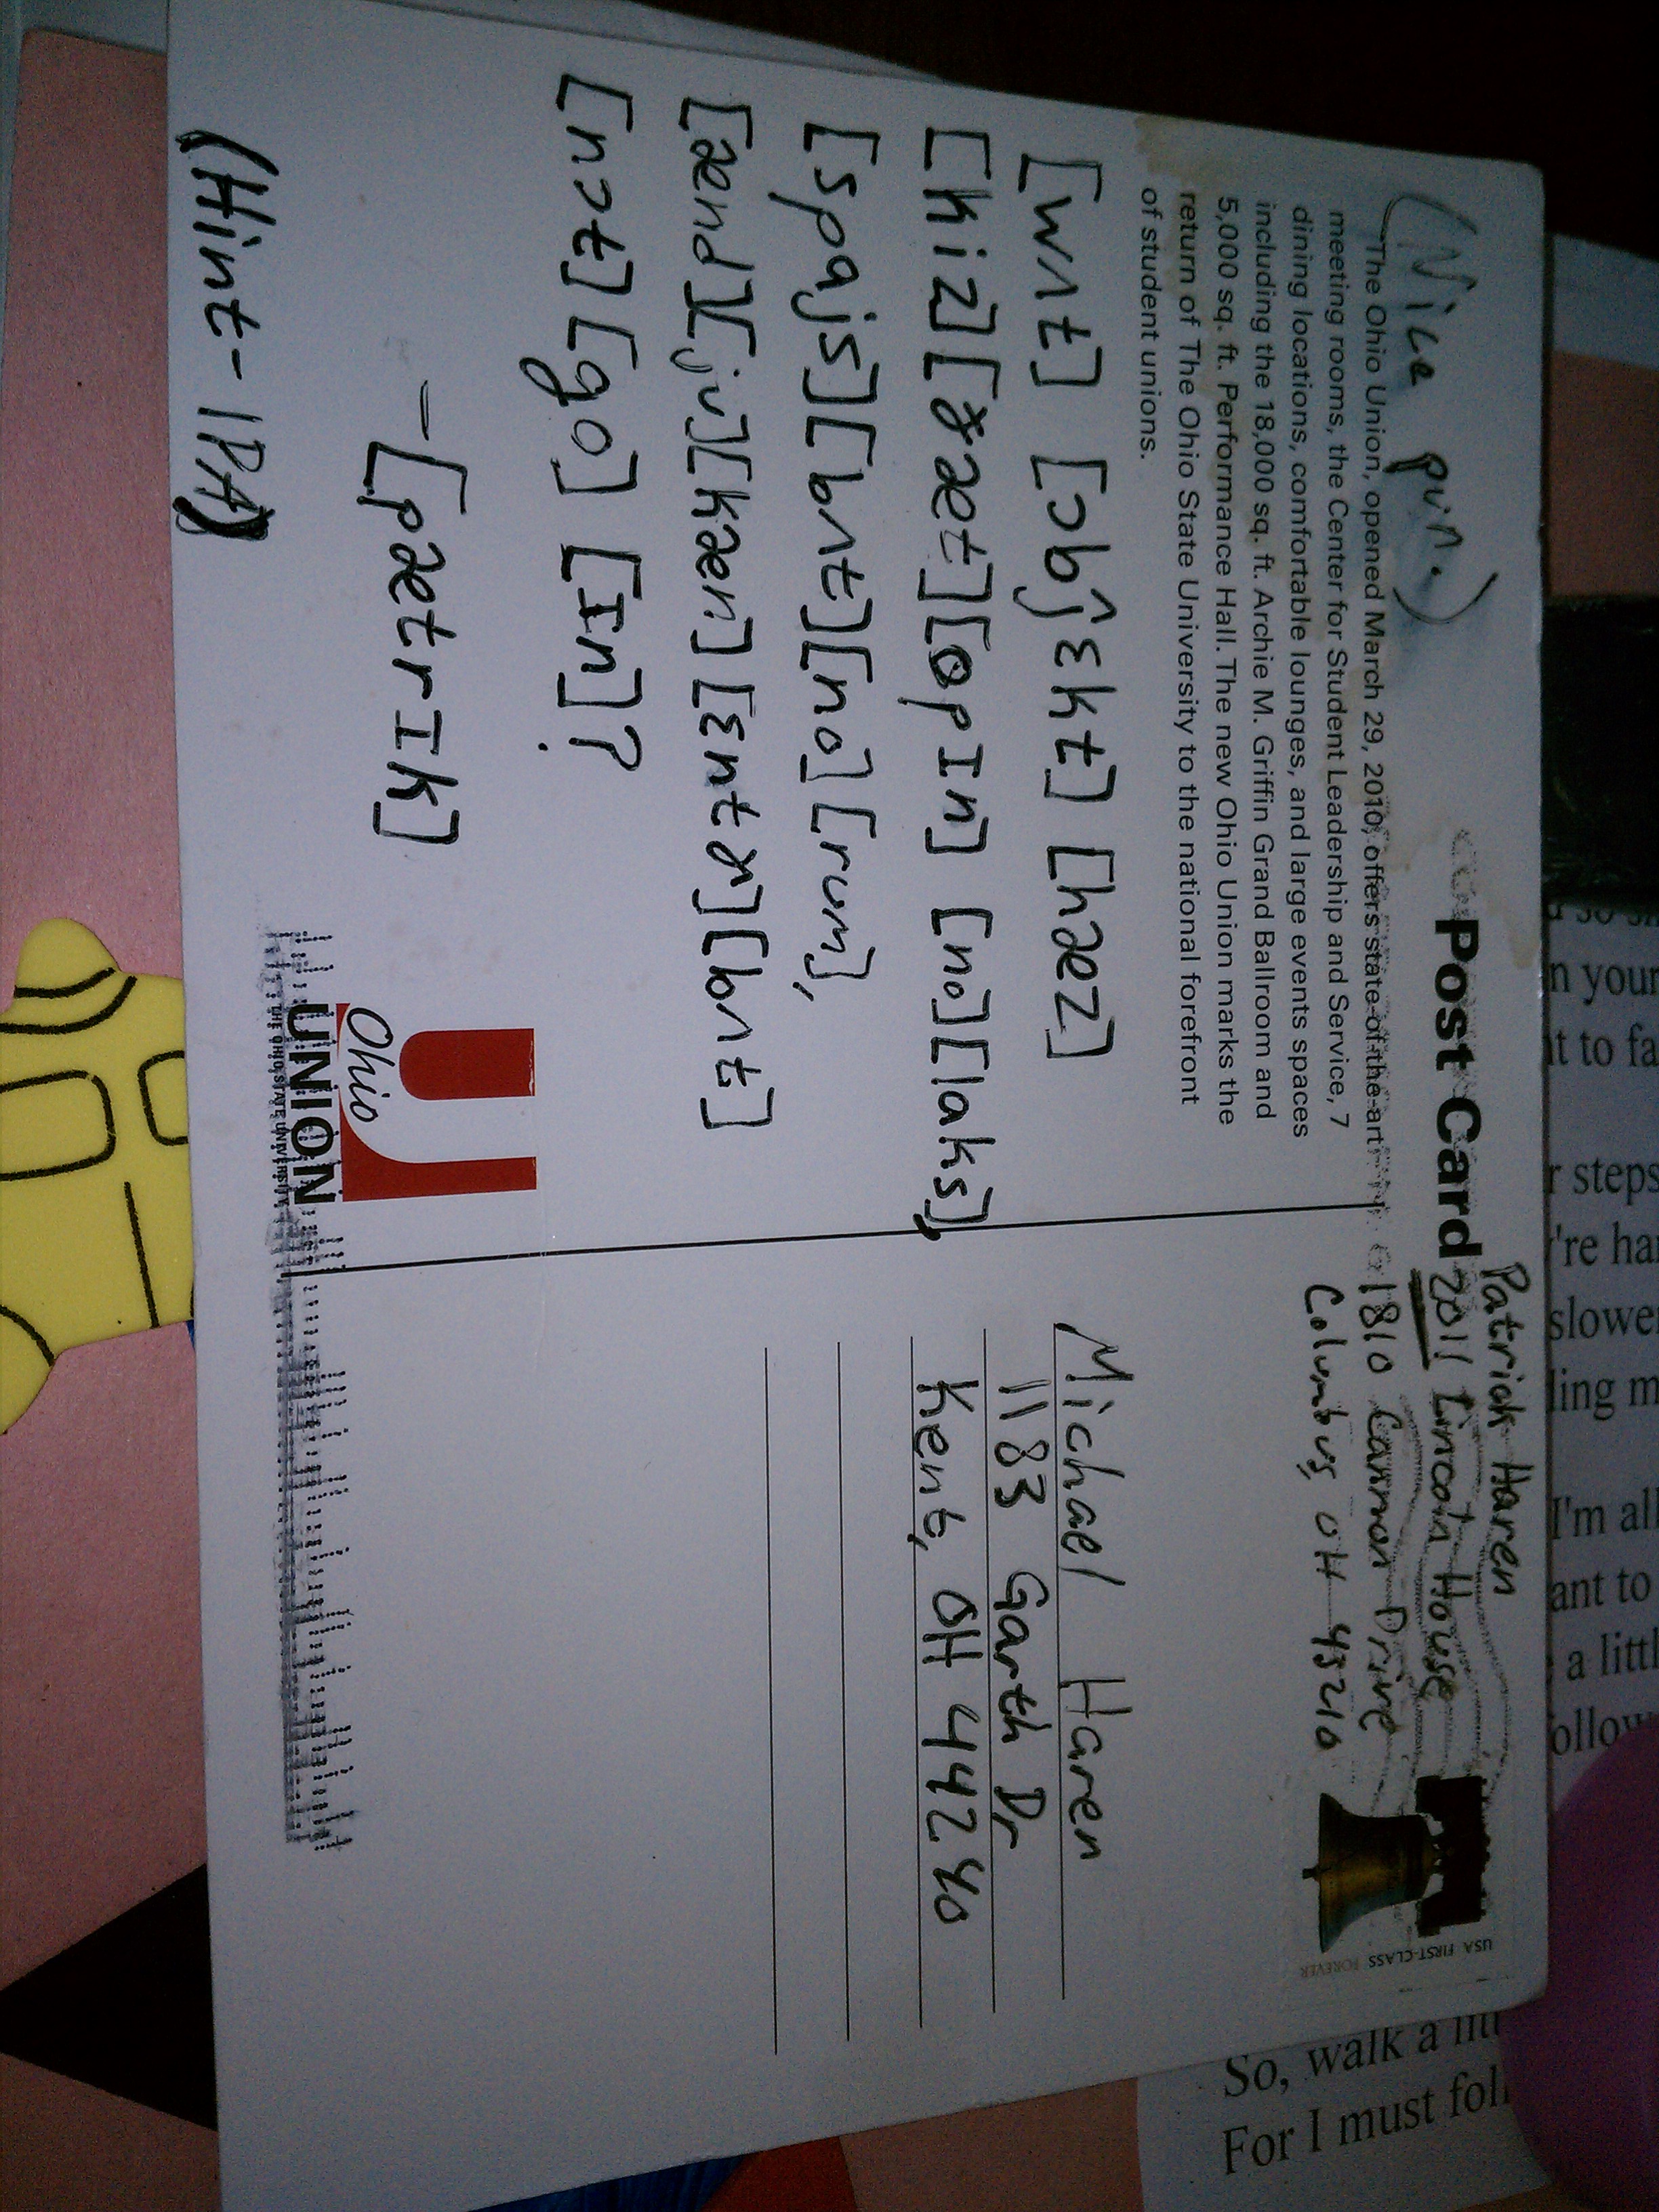 (Nice pun.)
Post Card
The Ohio Union, opened March 29, 2010, offers state-of-the-art
meeting rooms, the Center for Student Leadership and Service, 7
dining locations, comfortable lounges, and large events spaces
including the 18,000 sq. ft. Archie M. Griffin Grand Ballroom and
5,000 sq. ft. Performance Hall. The new Ohio Union marks the
return of The Ohio State University to the national forefront
of student unions.
[wʌt] [ɔbĵɛkt] [hæz]
[kiz] [ðæt] [opIn] [no] [laks],
[spajs] [bʌt] [no] [rum],
[ænd] [ju] [kæn] [ɛntɚ] [bʌt]
[nɔt] [go] [In]?
– [pætrIk]
(Hint - IPA)
Ohio
UNION
THE OHIO STATE UNIVERSITY
Patrick Haren
2011 Lincoln House
1810 Cannon Drive
Columbus, OH 43210
USA FIRST-CLASS FOREVER
Michael Haren
1183 Garth Dr
Kent, OH 44240
n your
t to fa
r steps
're ha
slowe
ling m
I'm all
ant to
a littl
ollow
So, walk a litt
For I must foll